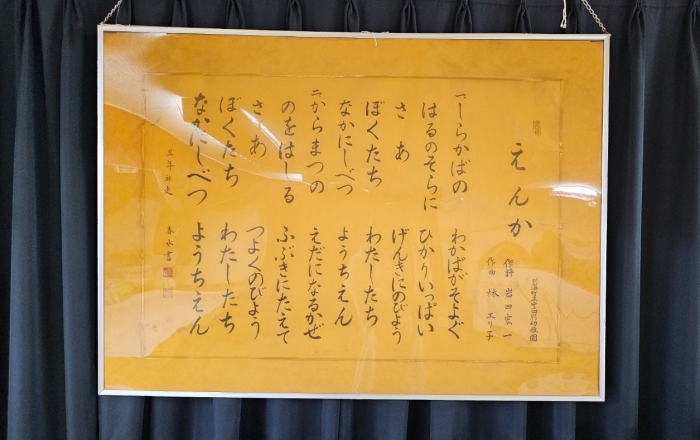 えんか
別海町立中西別幼稚園
作詩 岩田宏一
作曲 林 エリ子
一 しらかばの わかばがそよぐ
はるのそらに ひかりいっぱい
さあ げんきにのびよう
ぼくたち わたしたち
なかにしべつ ようちえん
二 からまつの えだになるかぜ
のをはしる ふぶきにたえて
さあ つよくのびよう
ぼくたち わたしたち
なかにしべつ ようちえん
春水書